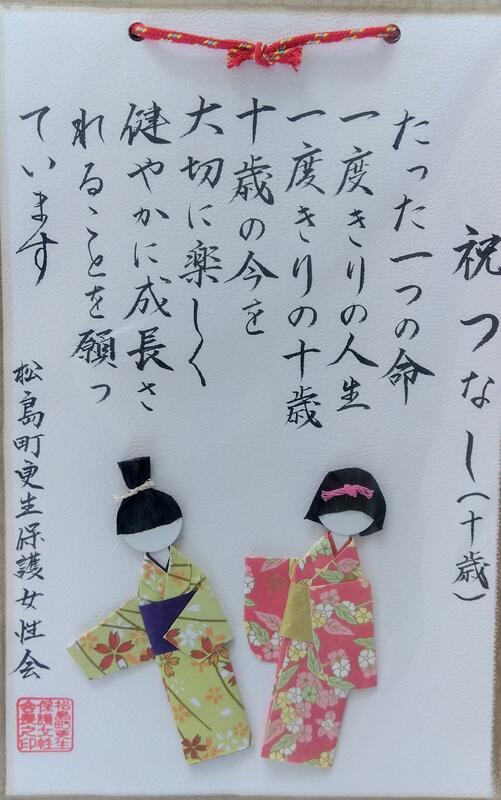 祝つなし(十歳)
たった一つの命
一度きりの人生
一度きりの十歳
十歳の今を
大切に楽しく
健やかに成長さ
れることを願っ
ています
松島町更生保護女性会
松島町更生
保護女性
会長之印